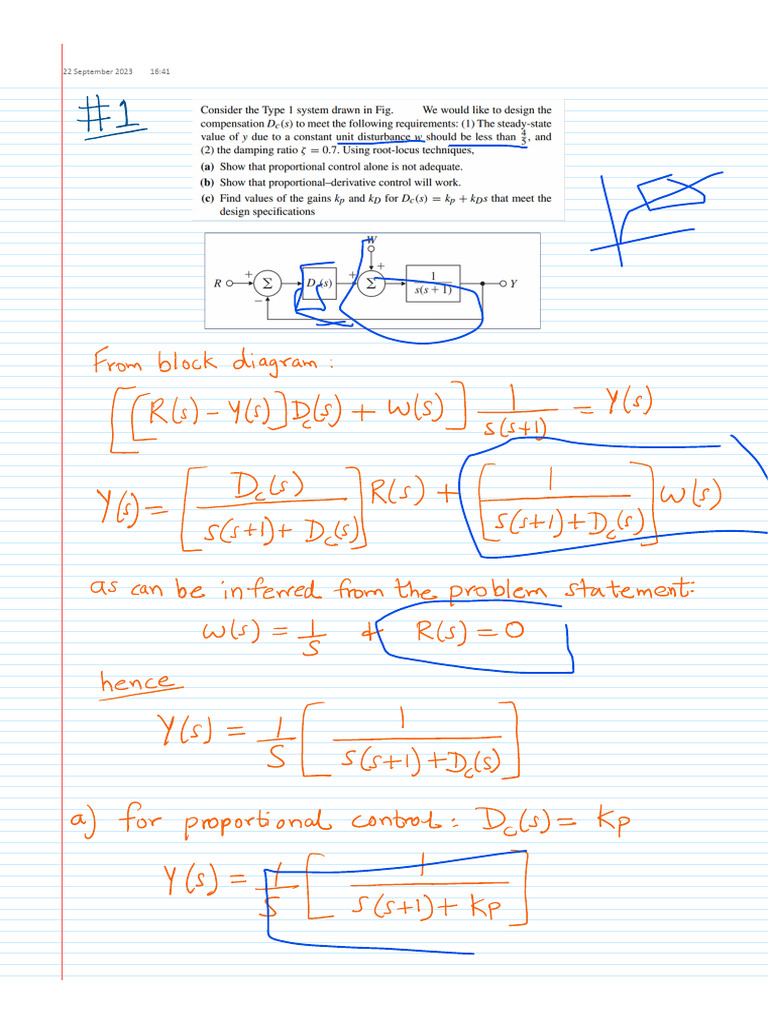 22 September 2023 16:41
#1
Consider the Type 1 system drawn in Fig. We would like to design the
compensation D_c(s) to meet the following requirements: (1) The steady-state
value of y due to a constant unit disturbance w should be less than 4/5, and
(2) the damping ratio ζ = 0.7. Using root-locus techniques,
(a) Show that proportional control alone is not adequate.
(b) Show that proportional–derivative control will work.
(c) Find values of the gains k_p and k_D for D_c(s) = k_p + k_D s that meet the
design specifications
W
R + Σ D_c(s) + + Σ 1/s(s + 1) Y
−
From block diagram :
[[R(s) − Y(s)] D_c(s) + W(s)] 1/s(s+1) = Y(s)
Y(s) = [D_c(s)/s(s+1) + D_c(s)] R(s) + [1/s(s+1) + D_c(s)] W(s)
as can be inferred from the problem statement:
W(s) = 1/s & R(s) = 0
hence
Y(s) = 1/s [1/s(s+1) + D_c(s)]
a) for proportional control : D_c(s) = Kp
Y(s) = 1/s [1/s(s+1) + Kp]